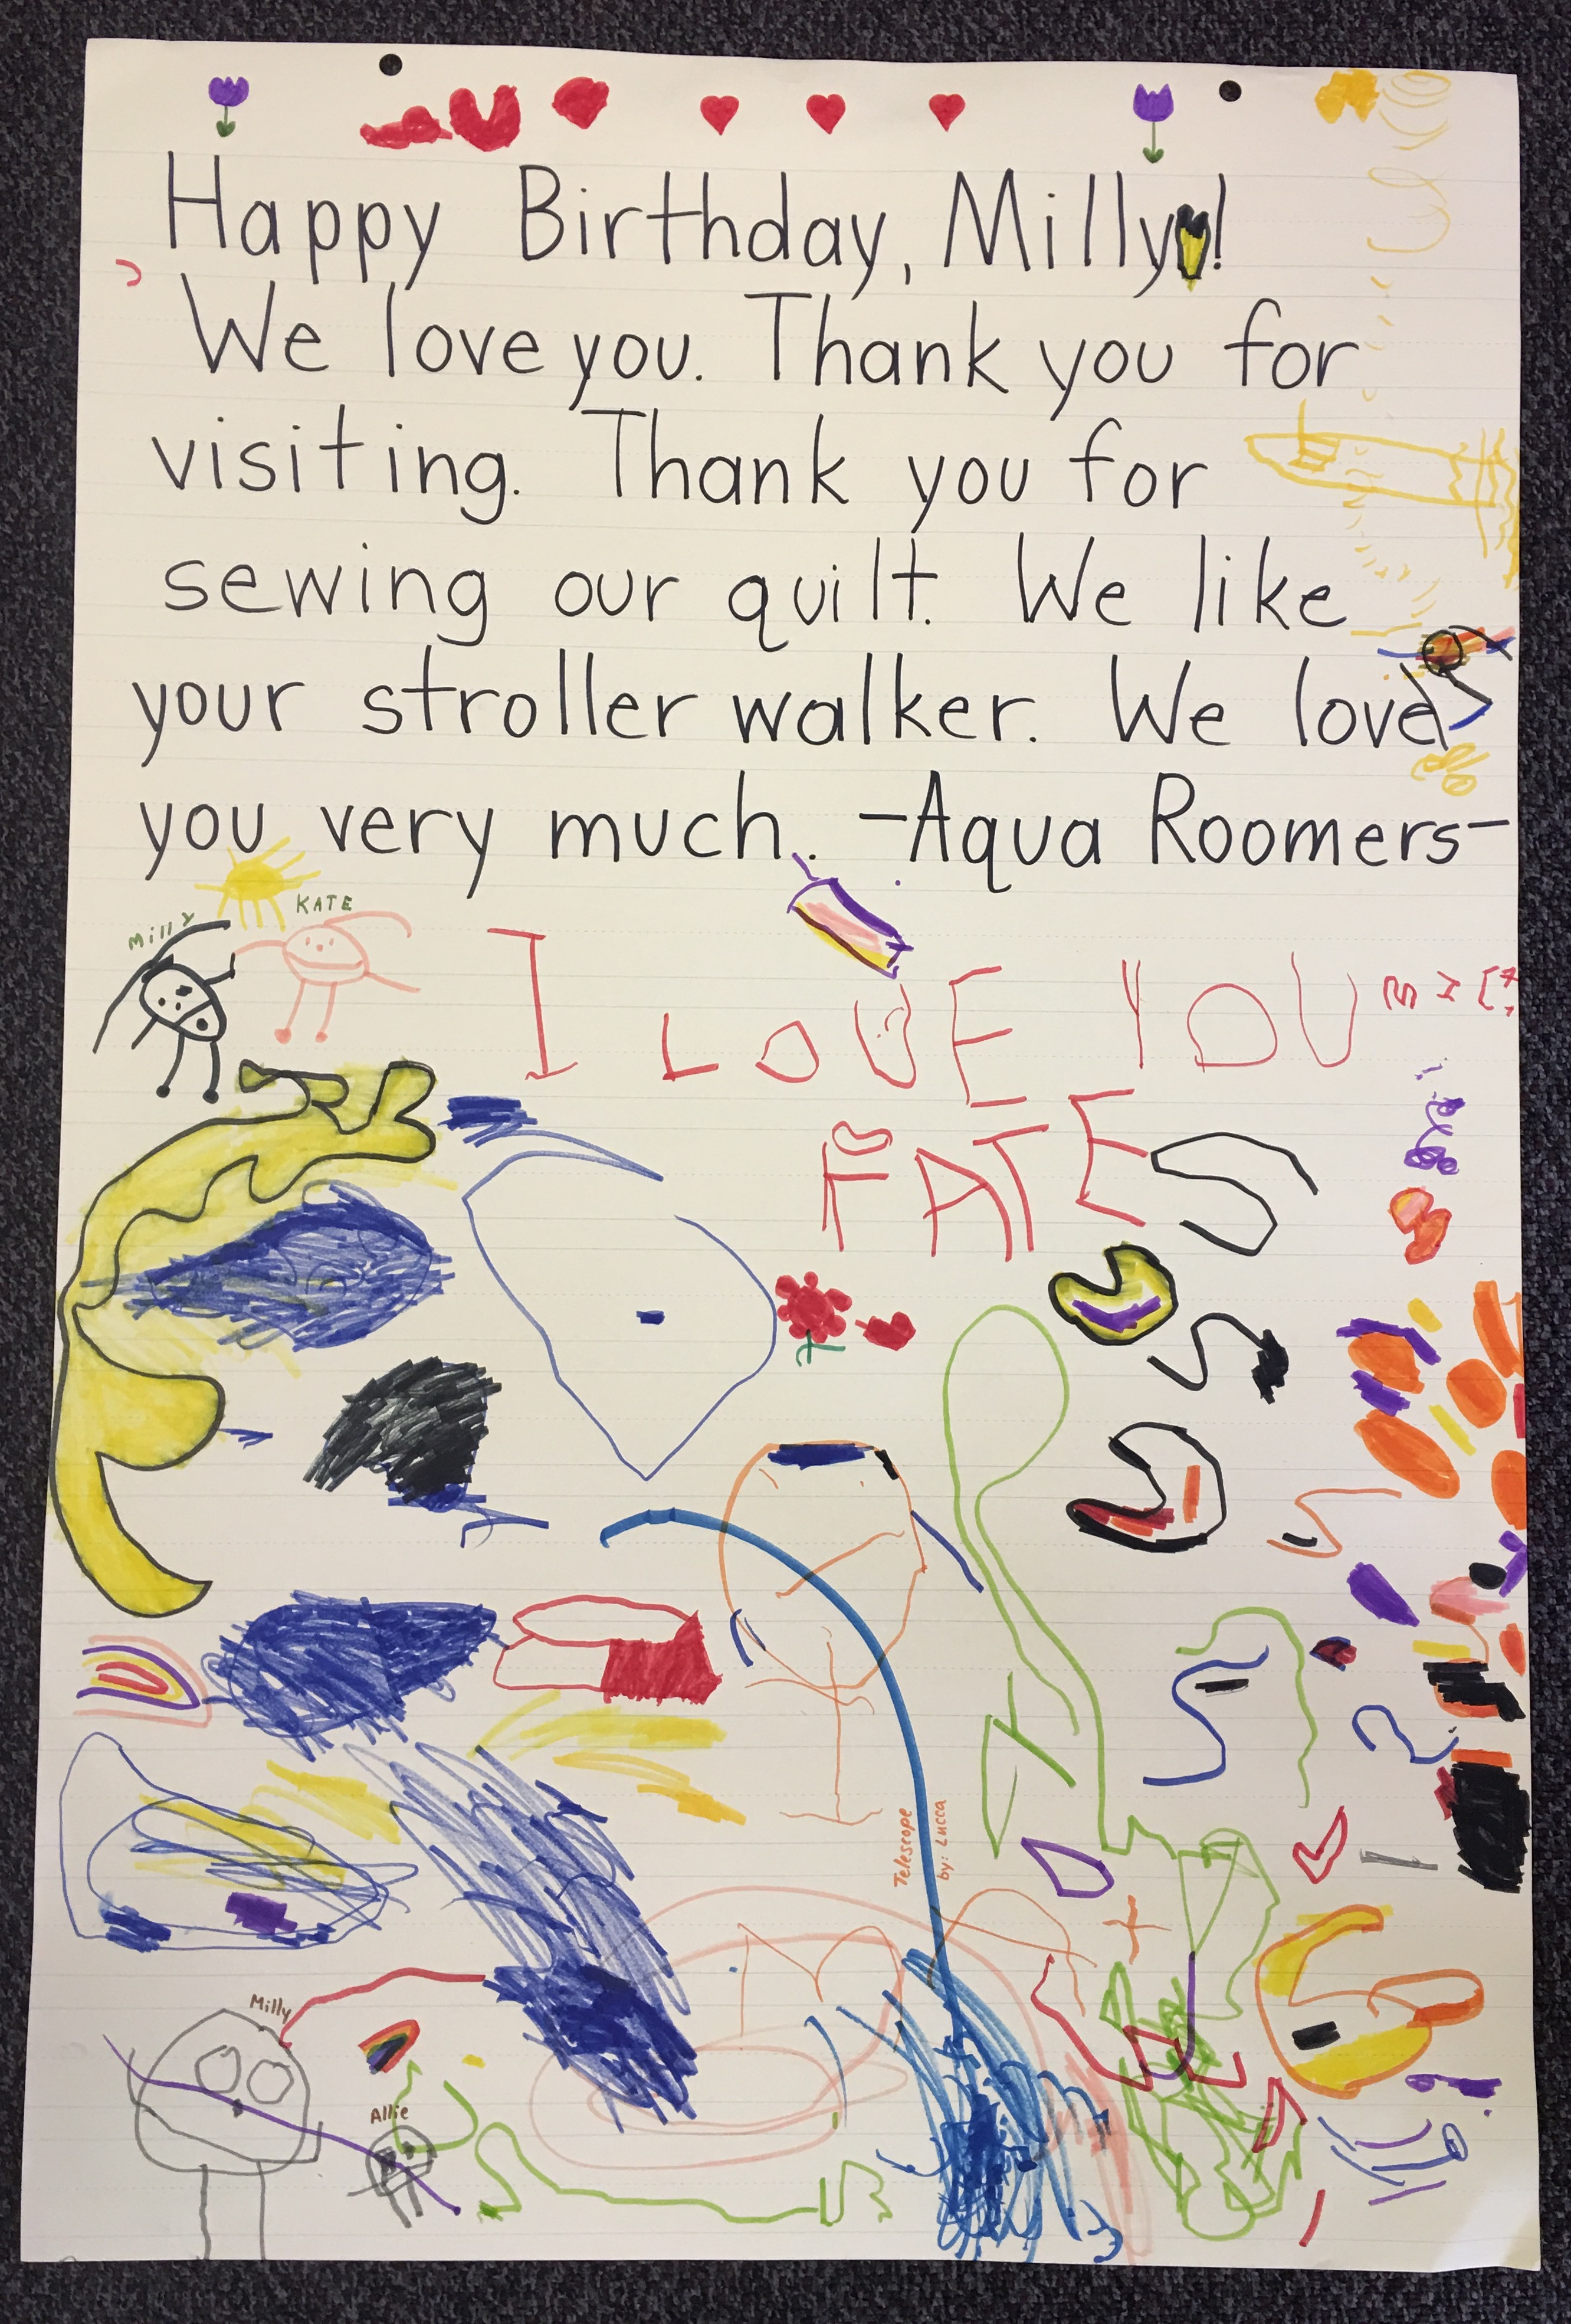 Happy Birthday, Milly!
We love you. Thank you for
visiting. Thank you for
sewing our quilt. We like
your stroller walker. We love
you very much. -Aqua Roomers-
Milly KATE
I LOVE YOU
Telescope
by: Lucca
Milly
Allie